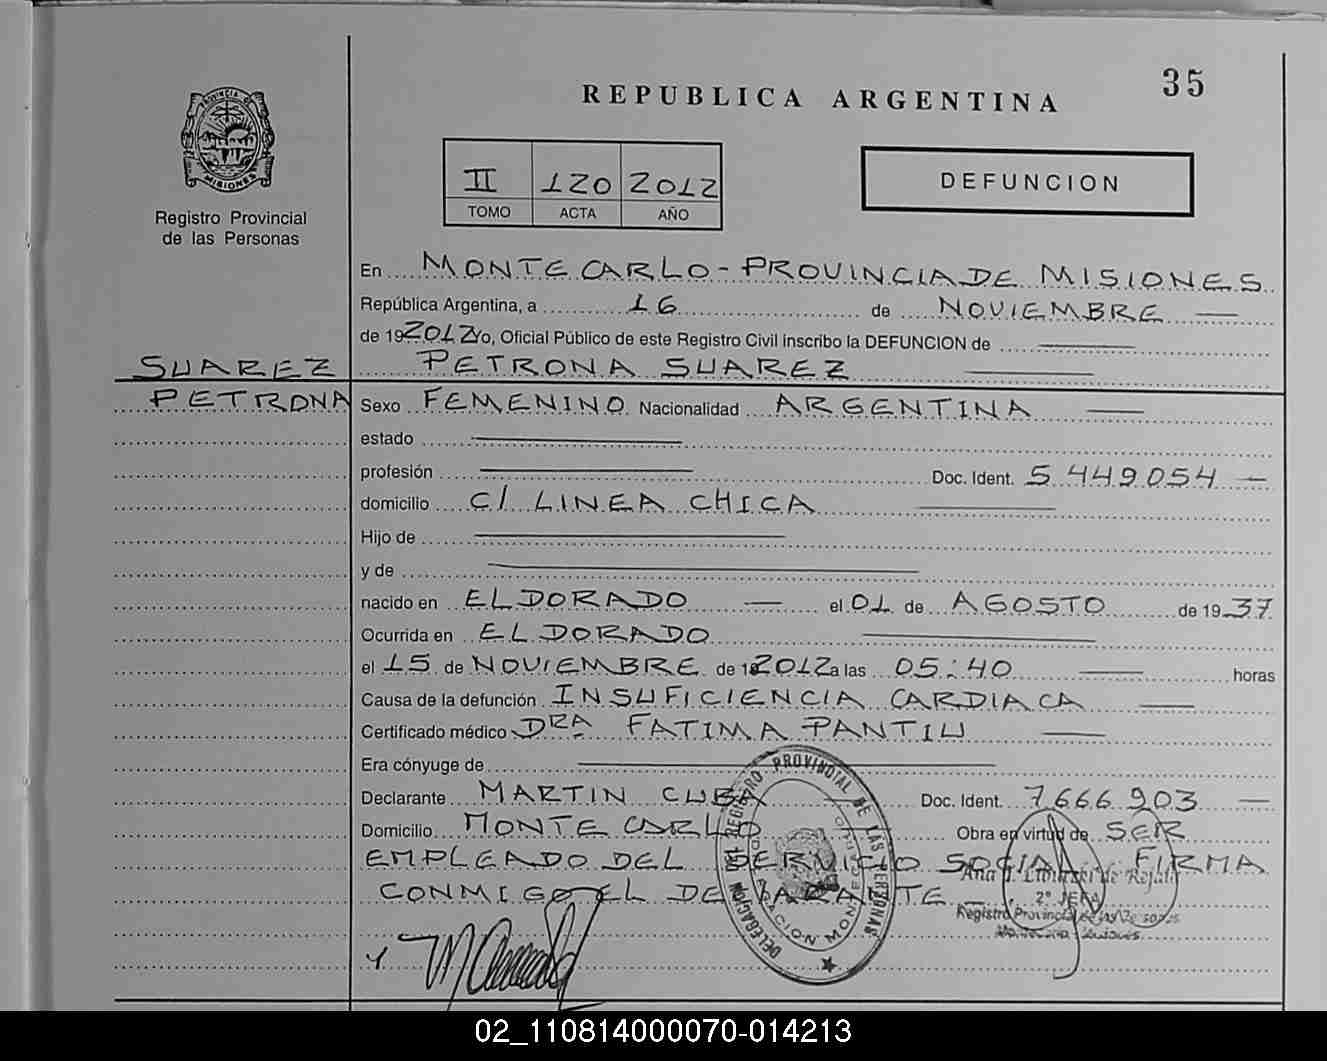 35
REPUBLICA ARGENTINA
PROVINCIA DE
MISIONES
Registro Provincial
de las Personas
II 120 2012
TOMO ACTA AÑO
DEFUNCION
En MONTECARLO - PROVINCIA DE MISIONES
República Argentina, a 16 de NOVIEMBRE
de 192012 Yo, Oficial Público de este Registro Civil inscribo la DEFUNCION de
SUAREZ
PETRONA SUAREZ
PETRONA
Sexo FEMENINO Nacionalidad ARGENTINA
estado
profesión Doc. Ident. 5.449.054
domicilio C/ LINEA CHICA
Hijo de
y de
nacido en ELDORADO el 01 de AGOSTO de 1937
Ocurrida en ELDORADO
el 15 de NOVIEMBRE de 192012 a las 05:40 horas
Causa de la defunción INSUFICIENCIA CARDIACA
Certificado médico DRA FATIMA PANTIU
Era cónyuge de
Declarante MARTIN CUBA Doc. Ident. 7.666.903
Domicilio MONTECARLO Obra en virtud de SER
EMPLEADO DEL SERVICIO SOCIAL FIRMA
CONMIGO EL DECLARANTE
DELEGACION DEL REGISTRO PROVINCIAL DE LAS PERSONAS
2º JEFA
Registro Provincial de las Personas
02_110814000070-014213